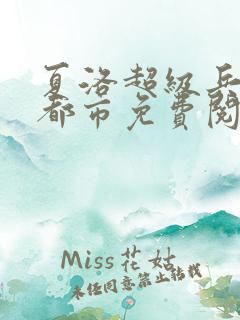 夏洛超級兵
都市免費閱
Miss花姑
未经同意禁止转载